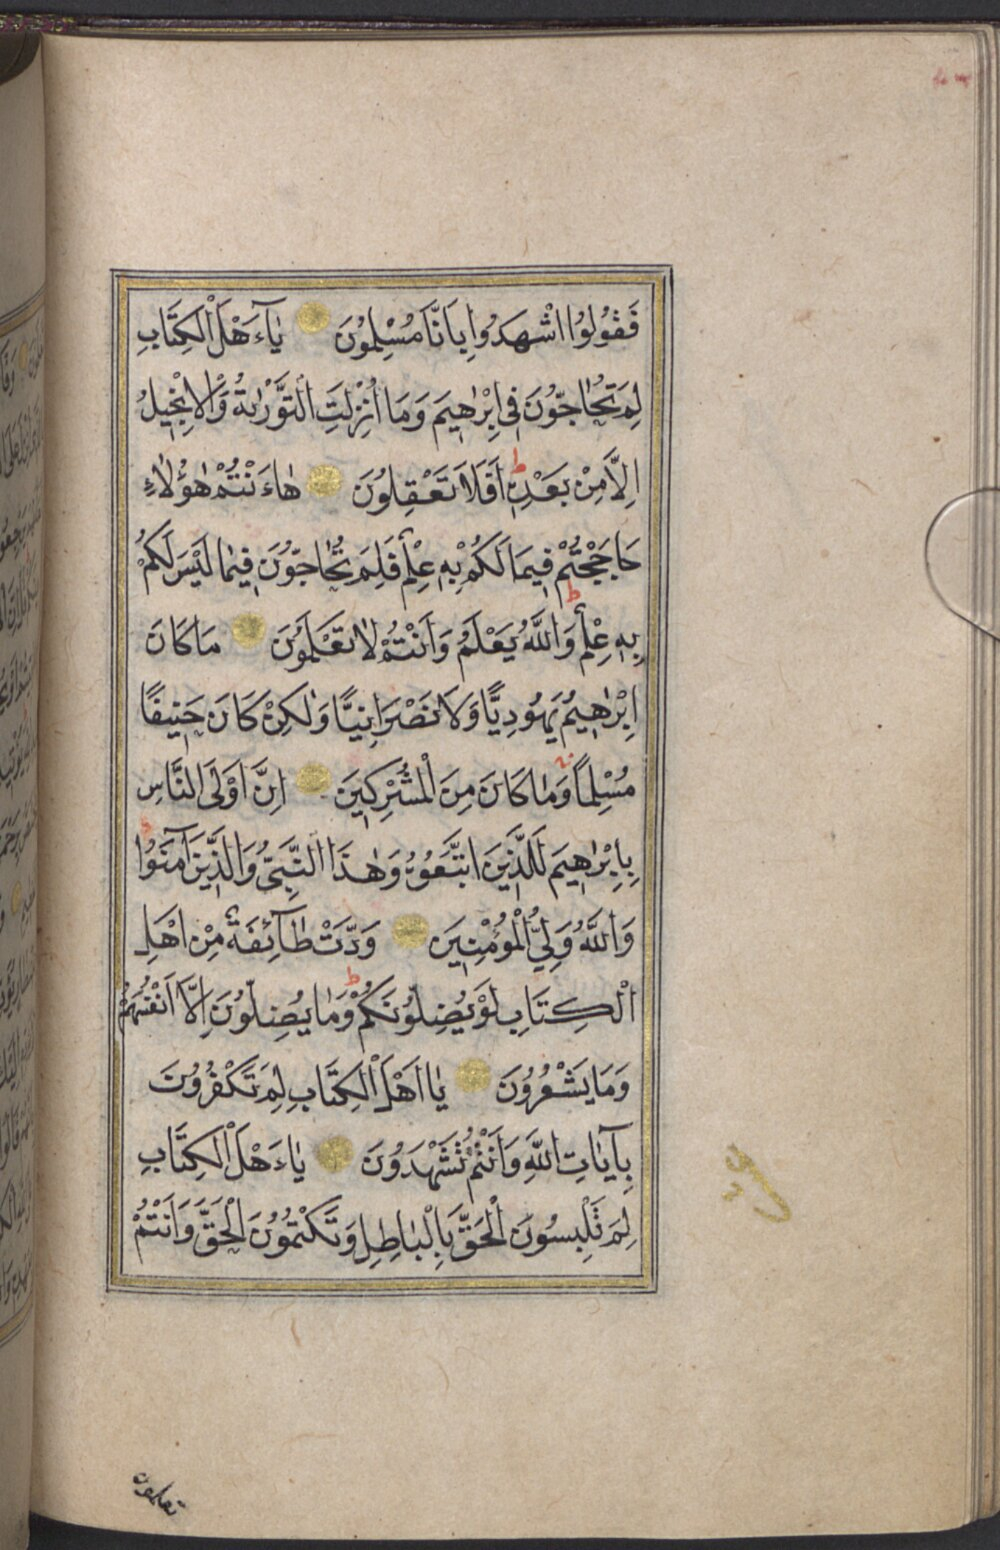 فَقُولُوا اشْهَدُوا بِاَنَّا مُسْلِمُونَ يٰآءَهْلَ الْكِتَابِ
لِمَ تُحَٓاجُّونَ فِى اِبْرٰهِيمَ وَمَا اُنْزِلَتِ التَّوْرٰيةُ وَالْاِنْجِيلُ
اِلَّا مِنْ بَعْدِهِ اَفَلَا تَعْقِلُونَ هٰاءَنْتُمْ هٰؤُلٰاءِ
حَاجَجْتُمْ فِيمَا لَكُمْ بِهِ عِلْمٌ فَلِمَ تُحَٓاجُّونَ فِيمٰا لَيْسَ لَكُمْ
بِهِ عِلْمٌ وَاللَّهُ يَعْلَمُ وَاَنْتُمْ لٰا تَعْلَمُونَ مَا كَانَ
اِبْرٰهِيمُ يَهُودِيًّا وَلَا نَصْرَانِيًّا وَلٰكِنْ كَانَ حَنِيفًا
مُسْلِمًا وَمٰا كَانَ مِنَ الْمُشْرِكِينَ اِنَّ اَوْلَى النَّاسِ
بِاِبْرٰهِيمَ لَلَّذِينَ اتَّبَعُوهُ وَهٰذَا النَّبِيُّ وَالَّذِينَ آمَنُوا
وَاللَّهُ وَلِيُّ الْمُؤْمِنِينَ وَدَّتْ طٰآئِفَةٌ مِنْ اَهْلِ
الْكِتَابِ لَوْ يُضِلُّونَكُمْ وَمٰا يُضِلُّونَ اِلَّا اَنْفُسَهُمْ
وَمَا يَشْعُرُونَ يٰا اَهْلَ الْكِتَابِ لِمَ تَكْفُرُونَ
بِآيٰاتِ اللَّهِ وَاَنْتُمْ تَشْهَدُونَ يٰاءَهْلَ الْكِتَابِ
لِمَ تَلْبِسُونَ الْحَقَّ بِالْبٰاطِلِ وَتَكْتُمُونَ الْحَقَّ وَاَنْتُمْ
تعلمون